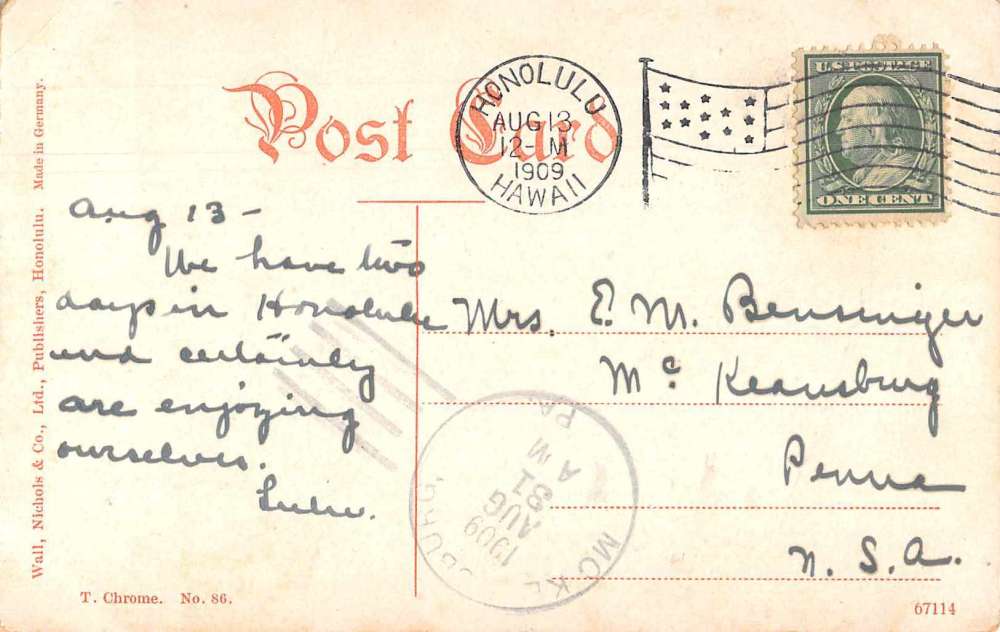 Post Card
HONOLULU
AUG 13
12-M
1909
HAWAII
U.S. POSTAGE
ONE CENT
Wall, Nichols & Co., Ltd., Publishers, Honolulu. Made in Germany.
Aug 13 -
We have two
days in Honolulu
and certainly
are enjoying
ourselves.
Lulu.
Mrs. E. M. Bensinger
Mc Keansburg
Penna
U. S. A.
PA.
AUG
31
AM
1909
T. Chrome. No. 86.
67114